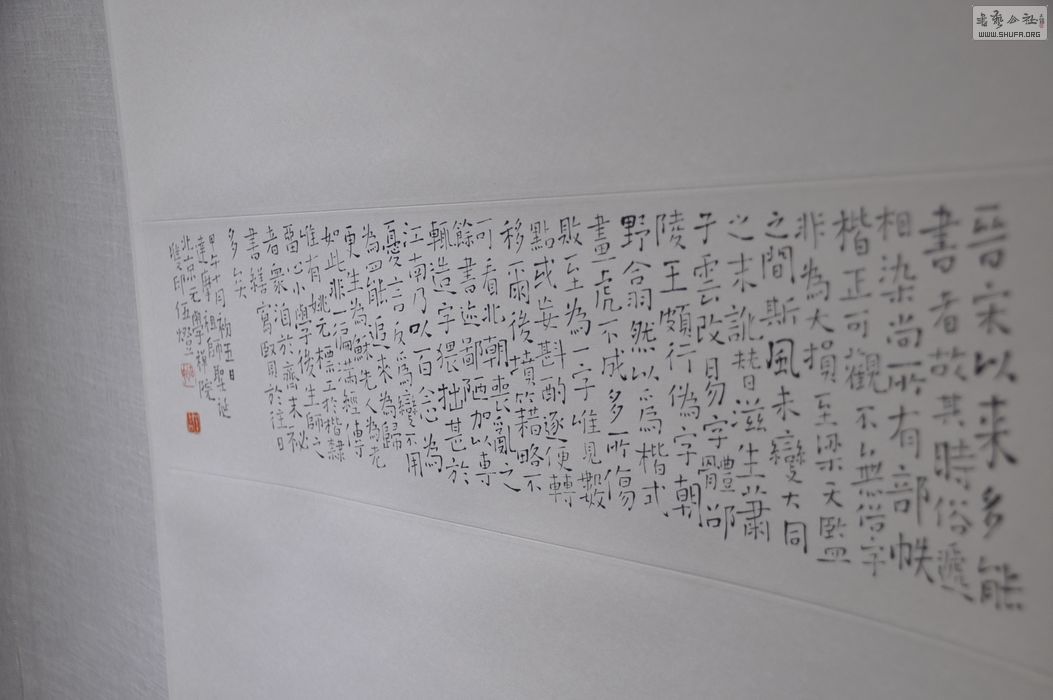 晉宋以来多能
書者故其時俗遞
相染尚所有部帙
楷正可觀不無俗字
非為大損至梁天監
之間斯風未變大同
之末訛替滋生蕭
子雲改易字體邵
陵王頗行偽字朝
野翕然以為楷式
畫虎不成多所傷
敗至為一字唯見數
點或妄斟酌逐便轉
移爾後墳籍略不
可看北朝喪亂之
餘書迹鄙陋加以專
輒造字猥拙甚於
江南乃以百念為
憂言反為變不用
為罷追來為歸
更生為蘇先人為老
如此非一徧滿經傳
唯有姚元標工於楷隸
留心小學後生師之
者眾洎於齊末祕
書繕寫賢於往日
多矣
甲午十月初五日
達摩祖師聖誕
北京元學禪院
雙印
書藝公社
WWW.SHUFA.ORG